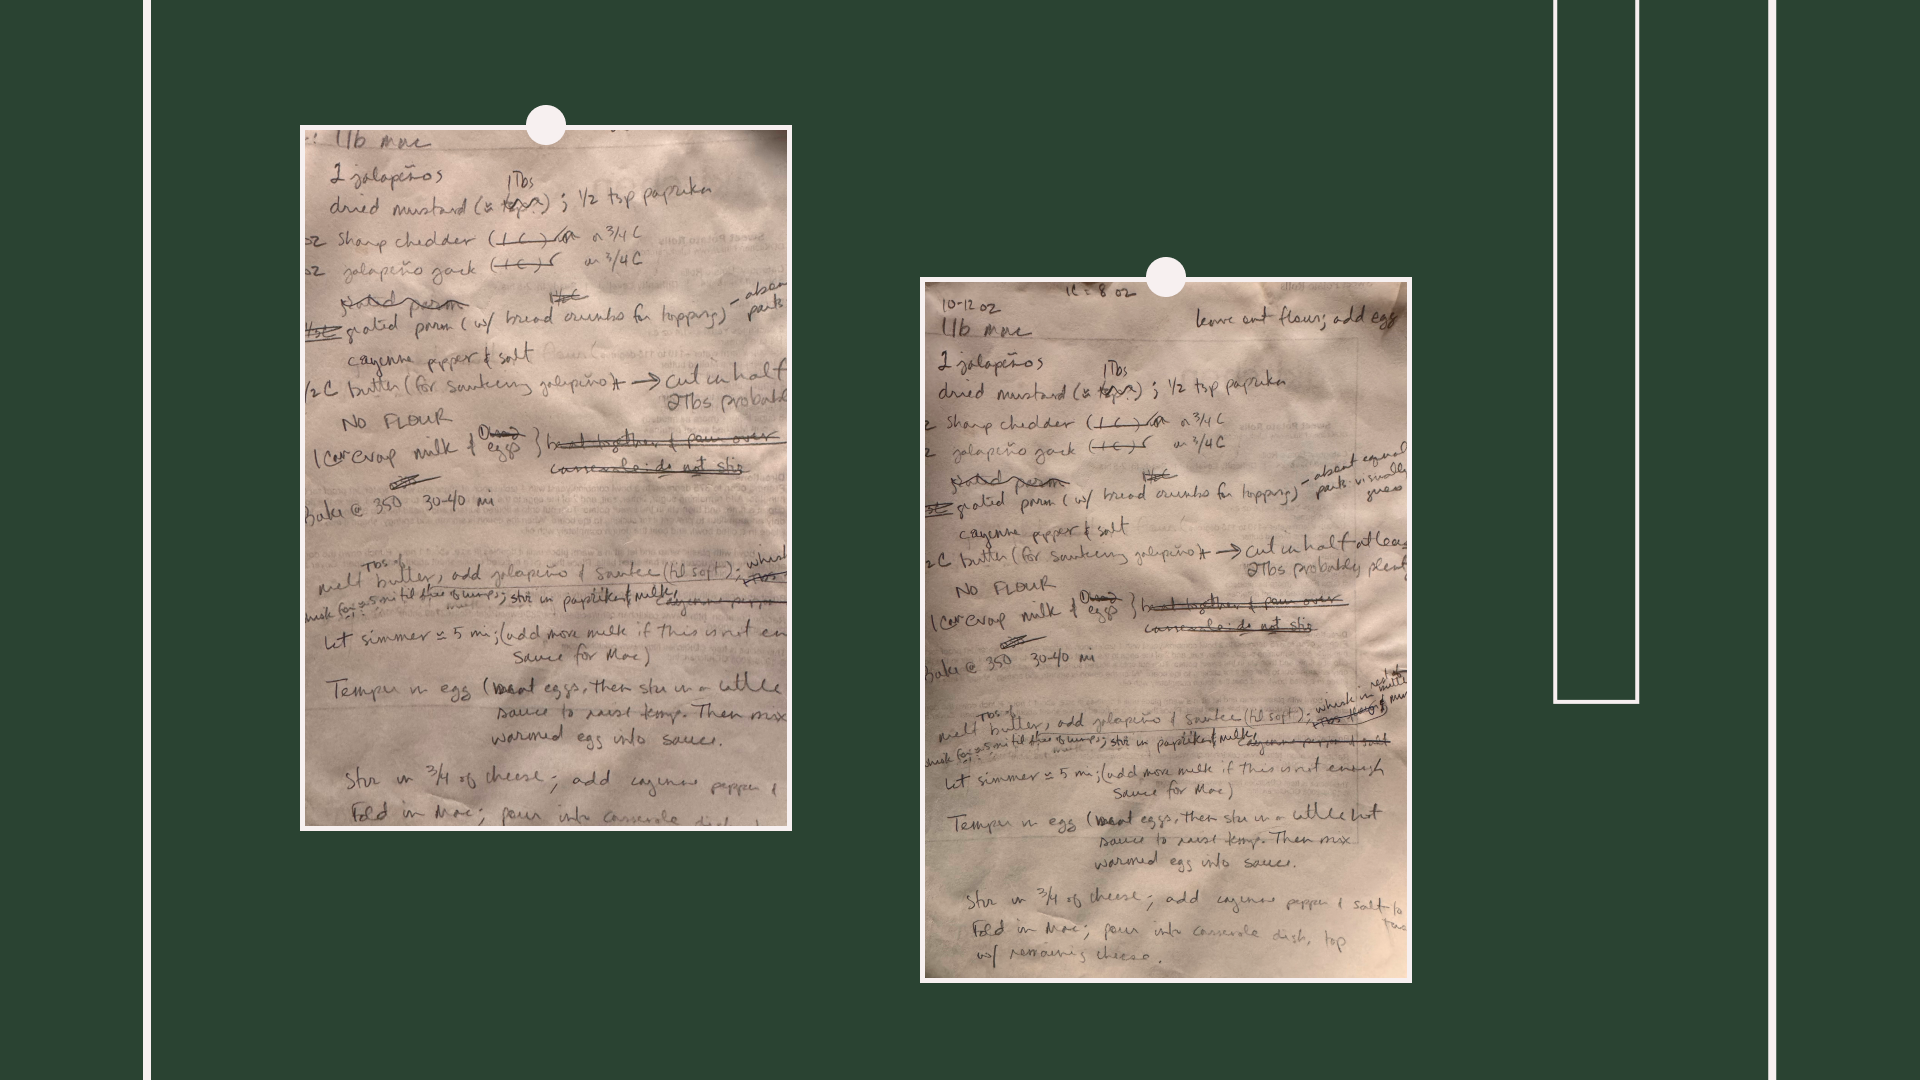 1lb mac
2 jalapeños
1 Tbs
dried mustard (≈ tsp?) ; 1/2 tsp paprika
oz Sharp chedder (1 C) or 3/4 C
oz jalapeño jack (1 C) or 3/4 C
grated parm
grated parm (w/ bread crumbs for topping) - about
parts
cayenne pepper & salt
1/2 C butter (for sauteeing jalapeño) → cut in half
2Tbs probabl
NO FLOUR
1 can evap milk & eggs } beat together & pour over
casserole: do not stir
Bake @ 350 30-40 mi
Tbs of
melt butter, add jalapeño & sautee (til soft); whisk
for ≈ 5 mi til free of lumps; stir in paprika & milk, cayenne pepper
Let simmer ≈ 5 mi; (add more milk if this is not en
sauce for Mac)
Temper in egg (beat eggs, then stir in a little
sauce to raise temp. Then mix
warmed egg into sauce.
Stir in 3/4 of cheese; add cayenne pepper &
Fold in Mac; pour into casserole dish,
1C = 8 oz
10-12 oz
leave out flour; add egg
1lb mac
2 jalapeños
1 Tbs
dried mustard (≈ tsp?) ; 1/2 tsp paprika
Sharp chedder (1 C) or 3/4 C
jalapeño jack (1 C) or 3/4 C
grated parm
grated parm (w/ bread crumbs for topping) - about equal
parts visually
guess
cayenne pepper & salt
2C butter (for sauteeing jalapeño) → cut in half at leas
2Tbs probably plent
NO FLOUR
1 can evap milk & eggs } beat together & pour over
casserole: do not stir
Bake @ 350 30-40 mi
Tbs of
melt butter, add jalapeño & sautee (til soft); whisk in
for ≈ 5 mi til free of lumps; stir in paprika & milk, cayenne pepper & salt
Let simmer ≈ 5 mi; (add more milk if this is not enough
sauce for Mac)
Temper in egg (beat eggs, then stir in a little hot
sauce to raise temp. Then mix
warmed egg into sauce.
Stir in 3/4 of cheese; add cayenne pepper & salt to
tas
Fold in Mac; pour into casserole dish, top
w/ remaining cheese.